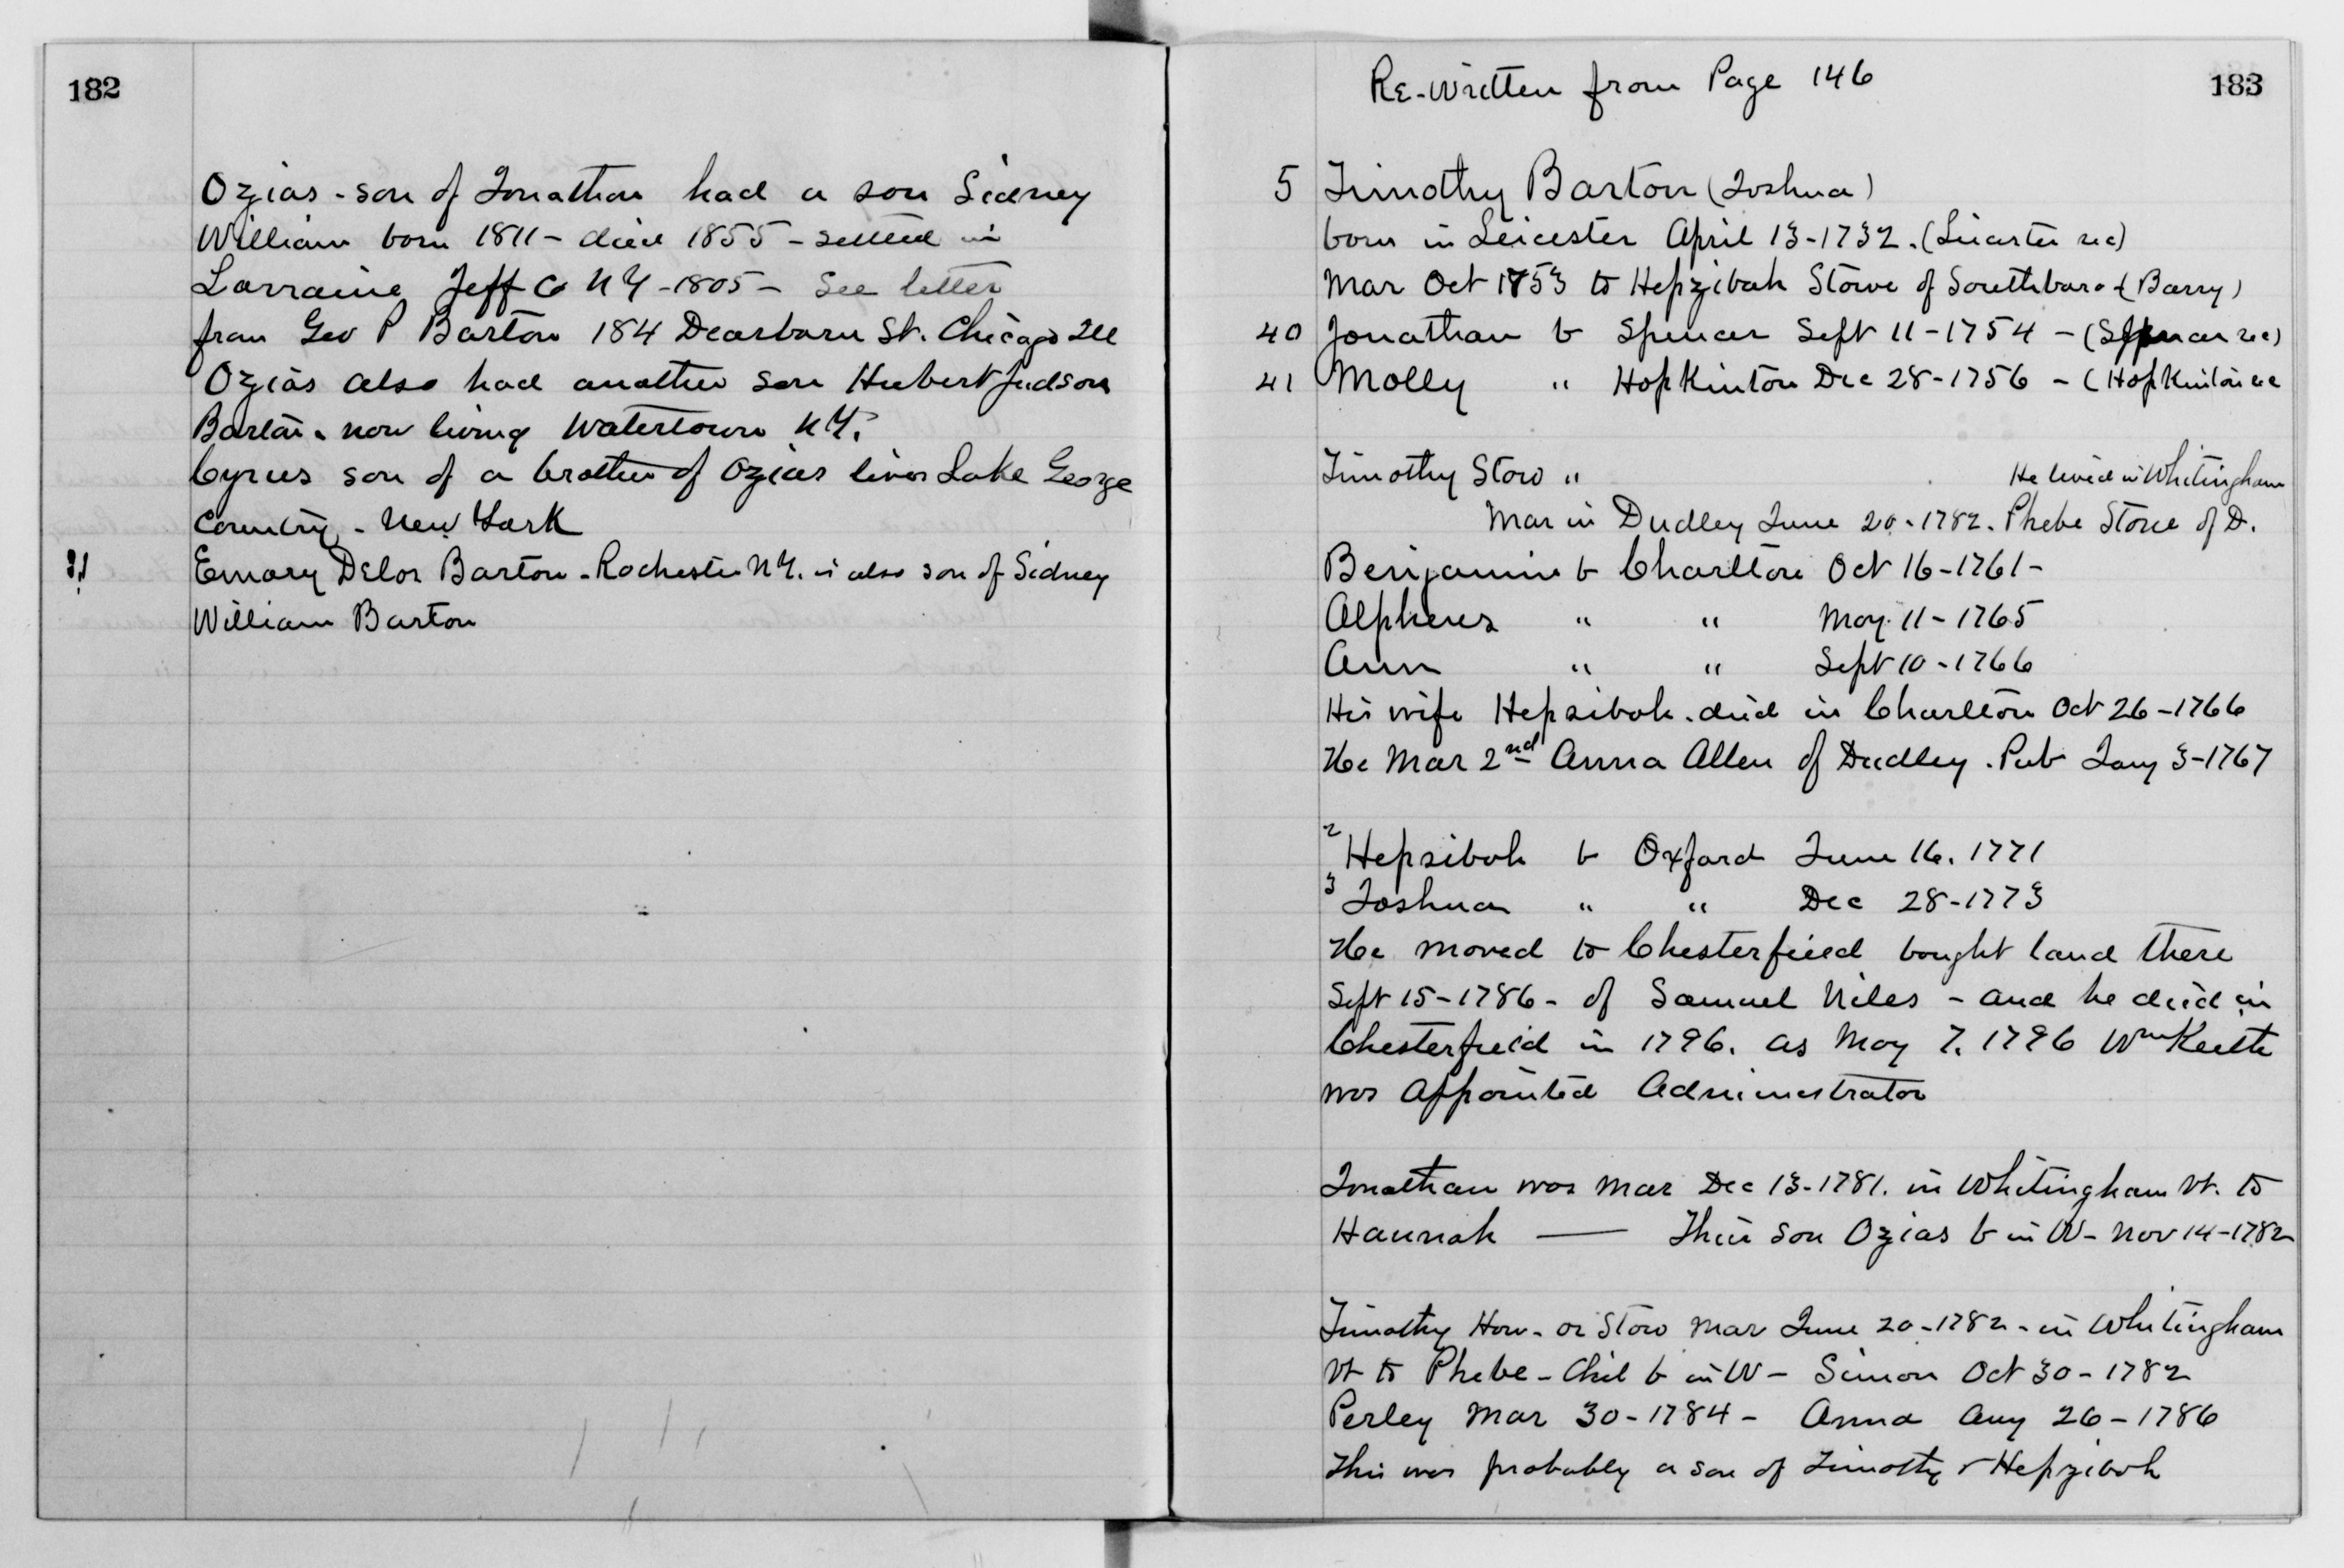 182
Ozias - son of Jonathan had a son Sidney
William born 1811 - died 1855 - settled in
Lorraine Jeff Co NY - 1805 - See letter
from Geo P Barton 184 Dearborn St. Chicago Ill
Ozias also had another son Hubert Judson
Barton - now living Watertown NY.
Cyrus son of a brother of Ozias lives Lake George
Country - New York
Emory Delos Barton - Rochester NY. is also son of Sidney
William Barton
Re-written from Page 146
183
5 Timothy Barton (Joshua)
born in Leicester April 13-1732. (Leicester rec)
Mar Oct 1753 to Hepzibah Stowe of Southboro - (Barry)
40 Jonathan b Spencer Sept 11-1754 - (Spencer rec)
41 Molly " Hopkinton Dec 28-1756 - (Hopkinton rec
Timothy Stow " He lived in Whitingham
Mar in Dudley June 20-1782. Phebe Stone of D.
Benjamin b Charlton Oct 16-1761-
Alpheus " " May 11-1765
Ann " " Sept 10-1766
His wife Hepsibah. died in Charlton Oct 26-1766
He Mar 2nd Anna Allen of Dudley. Pub Jany 3-1767
2 Hepsibah b Oxford June 16. 1771
3 Joshua " " Dec 28-1773
He moved to Chesterfield bought land there
Sept 15-1786 - of Samuel Niles - and he died in
Chesterfield in 1796. as May 7. 1796 Wm Keith
was appointed Administrator
Jonathan was mar Dec 13-1781. in Whitingham Vt. to
Hannah —— Their son Ozias b in W - Nov 14-1782
Timothy How - or Stow mar June 20-1782 - in Whitingham
Vt to Phebe - Chil b in W - Simon Oct 30-1782
Perley Mar 30-1784 - Anna Aug 26-1786
This was probably a son of Timothy & Hepzibah